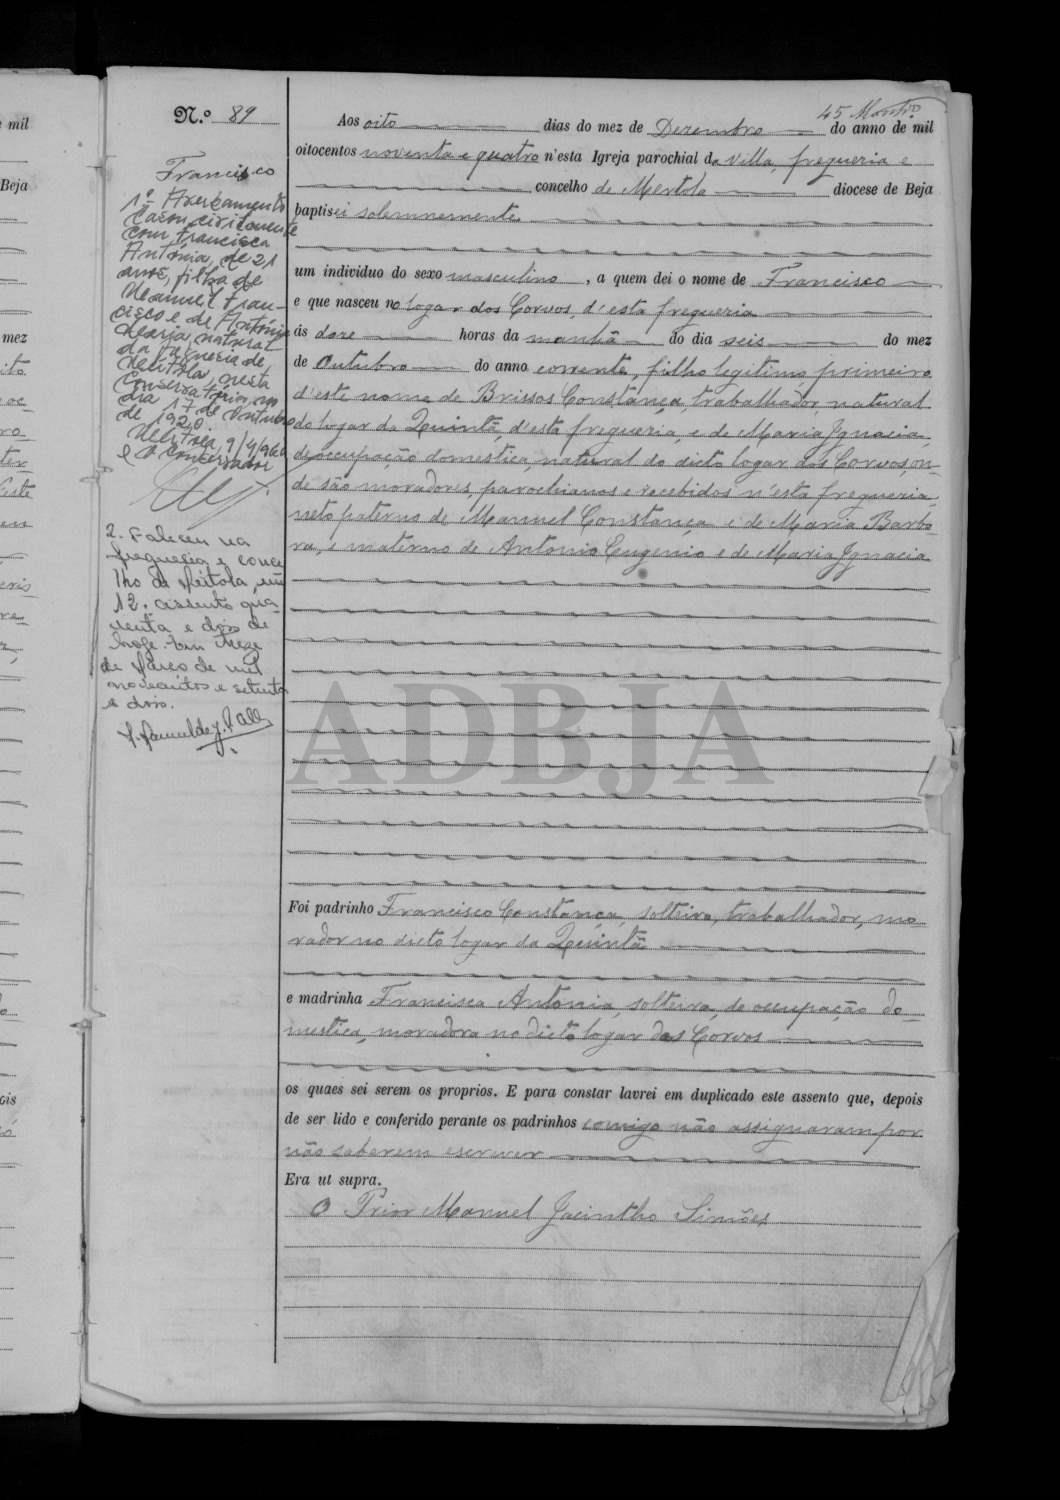 45 Mont.ro
N.º 89
Francisco
1.º Averbamento
Casou civilmente
com Francisca
Antónia, de 21
anos, filha de
Manuel Fran-
cisco e de Antónia
Maria, natural
da freguesia de
Mértola, nesta
Conservatória, no
dia 17 de Outubro
de 1920.
Mértola, 9/4/960
O Conservador
2. Faleceu na
freguesia e conce
lho de Mértola, em
12. assento qua-
renta e dois de
hoje. Em treze
de Março de mil
novecentos e setenta
e dois.
Aos oito dias do mez de Dezembro do anno de mil
oitocentos noventa e quatro n'esta Igreja parochial da villa, freguezia e
concelho de Mertola diocese de Beja
baptisei solemnemente
um individuo do sexo masculino, a quem dei o nome de Francisco
e que nasceu no logar dos Corvos, d'esta freguezia
ás doze horas da manhã do dia seis do mez
de Outubro do anno corrente, filho legitimo, primeiro
d'este nome de Brissos Constança, trabalhador, natural
do logar da Quintã, d'esta freguezia, e de Maria Ignacia,
de occupação domestica, natural do dicto logar dos Corvos, on-
de são moradores, parochianos e recebidos n'esta freguezia,
neto paterno de Manuel Constança e de Maria Barba-
ra, e materno de Antonio Eugenio e de Maria Ignacia
Foi padrinho Francisco Constança, solteiro, trabalhador, mo-
rador no dicto logar da Quintã
e madrinha Francisca Antonia, solteira, de occupação do-
mestica, moradora no dicto logar dos Corvos
os quaes sei serem os proprios. E para constar lavrei em duplicado este assento que, depois
de ser lido e conferido perante os padrinhos comigo não assignaram por
não saberem escrever
Era ut supra.
O Prior Manuel Jacintho Simões
ADBJA
e mil
Beja
mez